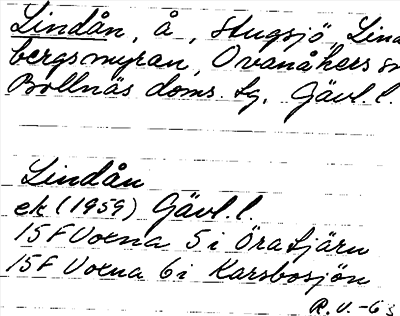 Lindån, å, Stugsjö, Lind
bergsmyran, Ovanåkers sn
Bollnäs doms. tg. Gävl. l.
Lindån
ek (1959) Gävl. l.
15F Voxna 5 i Öratjärn
15F Voxna 6 i Karsbosjön
R. V. -63